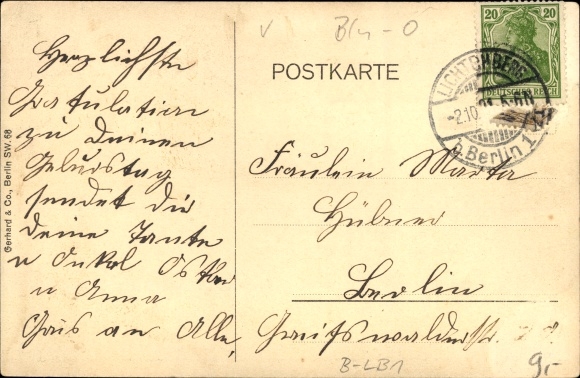 Bln-O
POSTKARTE
20 20
DEUTSCHES REICH
LICHTENBERG
-2.10.
b. Berlin 1
Gerhard & Co., Berlin SW. 68
Herzlichste
Gratulation
zu Deinen
Geburtstag
sendet dir
deine Tante
u Onkel
u Anna
Grus an Alle,
Fräulein Marta
Hübner
Berlin
Greifswalderstr.
B-LB1
9,-